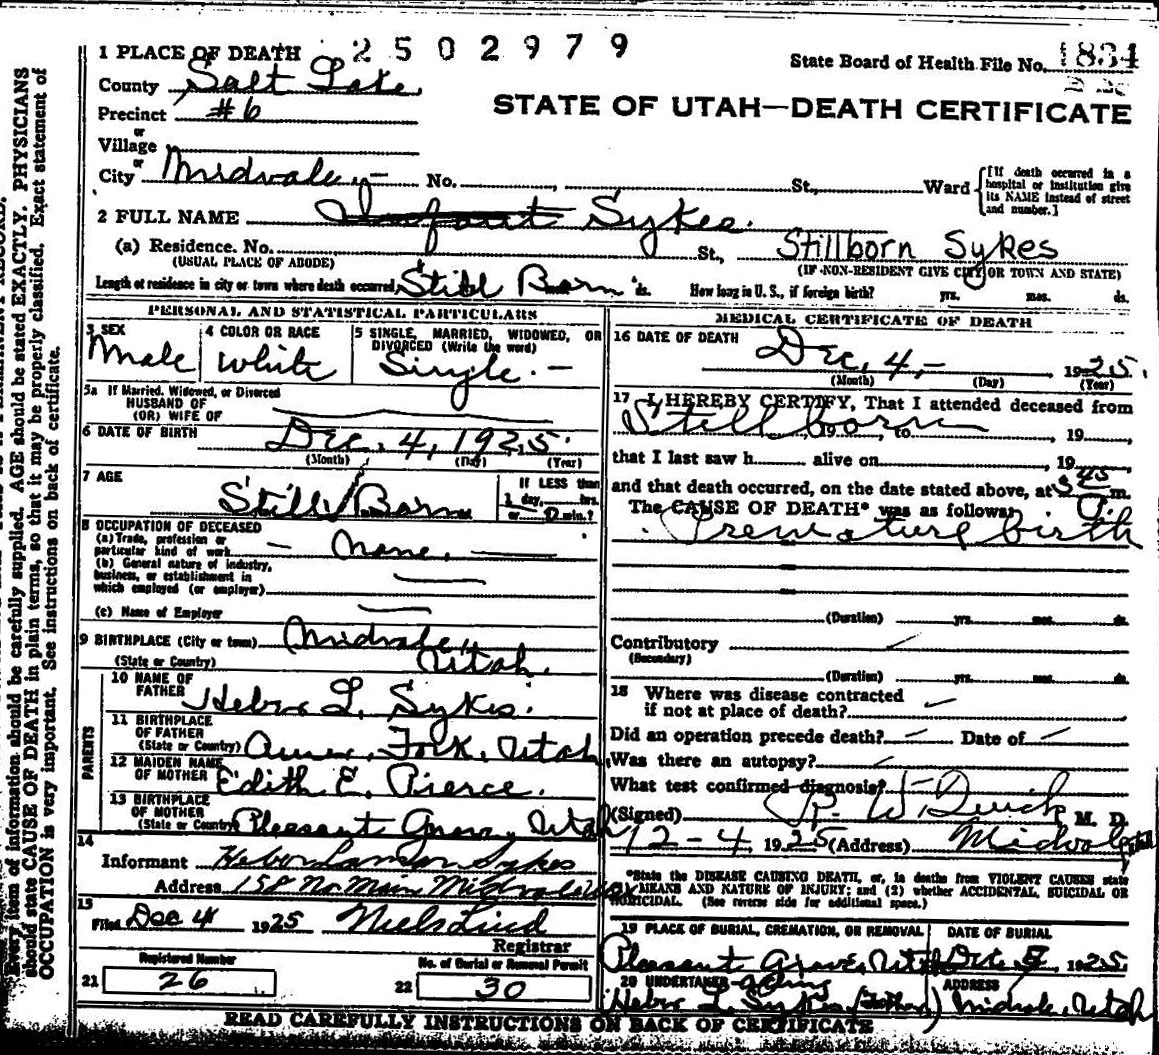 1 PLACE OF DEATH 2502979
State Board of Health File No. 1834
County Salt Lake
STATE OF UTAH—DEATH CERTIFICATE
Precinct #6
or
Village
or
City Midvale, No. , St., Ward
[If death occurred in a hospital or institution give its NAME instead of street and number.]
2 FULL NAME Infant Sykes.
(a) Residence. No. St., Stillborn Sykes
(USUAL PLACE OF ABODE) (IF NON-RESIDENT GIVE CITY OR TOWN AND STATE)
Length of residence in city or town where death occurred, Still Born ds. How long in U. S., if foreign birth? yrs. mos. ds.
PERSONAL AND STATISTICAL PARTICULARS
3 SEX Male
4 COLOR OR RACE White
5 SINGLE, MARRIED, WIDOWED, OR DIVORCED (Write the word) Single.-
5a If Married, Widowed, or Divorced
HUSBAND OF
(OR) WIFE OF
6 DATE OF BIRTH Dec. 4, 1925.
(Month) (Day) (Year)
7 AGE Still Born
If LESS than
1 day, hrs.
or 0 min.?
8 OCCUPATION OF DECEASED
(a) Trade, profession or
particular kind of work - None.
(b) General nature of industry,
business, or establishment in
which employed (or employer)
(c) Name of Employer
9 BIRTHPLACE (City or town) Midvale,
(State or Country) Utah.
PARENTS
10 NAME OF FATHER Heber L. Sykes.
11 BIRTHPLACE OF FATHER (State or Country) Amer. Fork, Utah
12 MAIDEN NAME OF MOTHER Edith E. Pierce.
13 BIRTHPLACE OF MOTHER (State or Country) Pleasant Grove, Utah
14
Informant Heber Sykes
Address 158 No Main Midvale
15
Filed Dec 4 1925 Niels Lind
Registrar
Registered Number
21 26
No. of Burial or Removal Permit
22 30
MEDICAL CERTIFICATE OF DEATH
16 DATE OF DEATH Dec, 4,- 1925.
(Month) (Day) (Year)
17 I HEREBY CERTIFY, That I attended deceased from
Still born, 19 , to , 19 ,
that I last saw h alive on , 19
and that death occurred, on the date stated above, at 3 45 P. m.
The CAUSE OF DEATH* was as follows:
Premature birth
(Duration) yrs. mos. ds.
Contributory
(Secondary)
(Duration) yrs. mos. ds.
18 Where was disease contracted
if not at place of death?
Did an operation precede death? Date of
Was there an autopsy?
What test confirmed diagnosis?
(Signed) M. D.
12-4, 1925 (Address) Midvale Utah
*State the DISEASE CAUSING DEATH, or, in deaths from VIOLENT CAUSES state
MEANS AND NATURE OF INJURY; and (2) whether ACCIDENTAL, SUICIDAL OR
HOMICIDAL. (See reverse side for additional space.)
19 PLACE OF BURIAL, CREMATION, OR REMOVAL DATE OF BURIAL
Pleasant Grove, Utah Dec 5, 1925.
20 UNDERTAKER-acting ADDRESS
Heber L. Sykes (Father) Midvale, Utah
READ CAREFULLY INSTRUCTIONS ON BACK OF CERTIFICATE
Every item of information should be carefully supplied. AGE should be stated EXACTLY. PHYSICIANS
should state CAUSE OF DEATH in plain terms, so that it may be properly classified. Exact statement of
OCCUPATION is very important. See instructions on back of certificate.